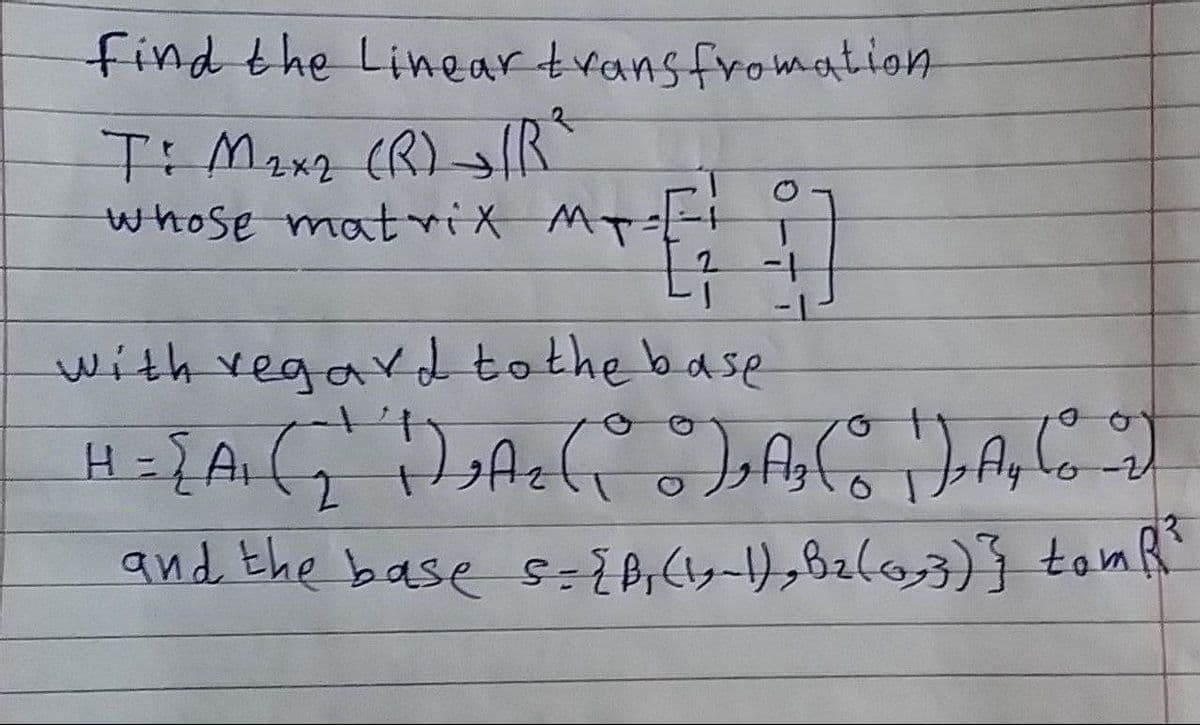 Find the Linear transfromation
T: M2x2 (R) → IR²
whose matrix MT = [1 0
-1 1
2 -1
1 -1]
with regard to the base
H = {A1 (-1 1
2 1), A2 (0 0
1 0), A3 (0 1
0 1), A4 (0 0
0 -2)
and the base s = {B1 (1,-1), B2(0,3)} tom R²